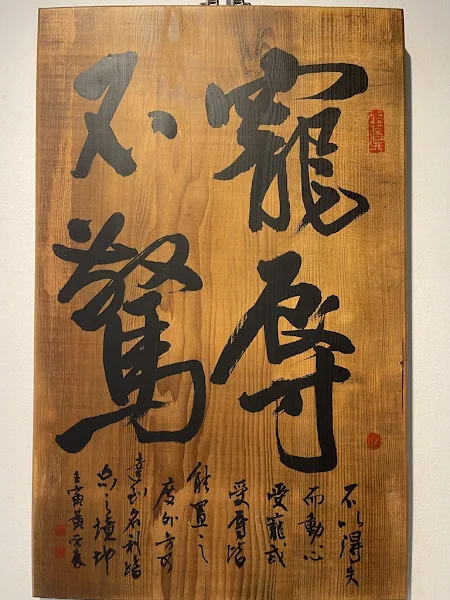 寵辱
不驚
不以得失
而動心
受寵或
受辱皆
能置之
度外方可
達到名利皆
忘之境地
壬寅黃